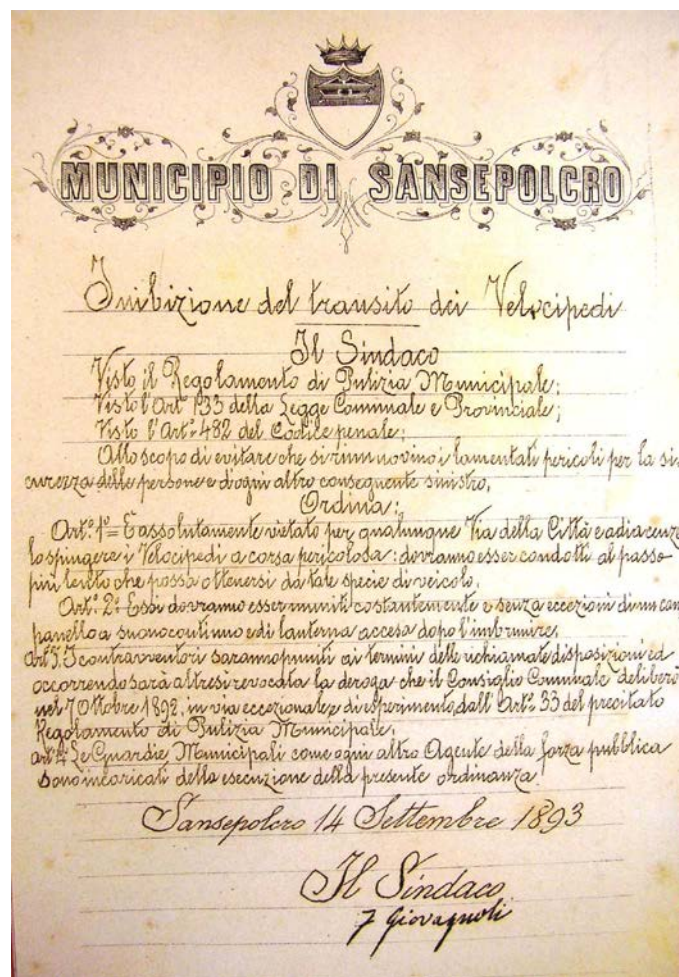 MUNICIPIO DI SANSEPOLCRO
Inibizione del transito dei Velocipedi
Il Sindaco
Visto il Regolamento di Pulizia Municipale;
Visto l'Art. 133 della Legge Comunale e Provinciale;
Visto l'Art. 482 del Codice penale;
Allo scopo di evitare che si rinnovino i lamentati pericoli per la si=
curezza delle persone e d'ogni altro conseguente sinistro,
Ordina:
Art. 1º = È assolutamente vietato per qualunque Via della Città e adiacenze
lo spingere i Velocipedi a corsa pericolosa: dovranno esser condotti al passo
più lento che possa ottenersi da tale specie di veicolo.
Art. 2º Essi dovranno esser muniti costantemente e senza eccezioni di un cam
panello a suono continuo e di lanterna accesa dopo l'imbrunire.
Art. 3. I contravventori saranno puniti ai termini delle richiamate disposizioni ed
occorrendo sarà altresì revocata la deroga che il Consiglio Comunale deliberò
nel 7 Ottobre 1892, in via eccezionale e di esperimento, dall'Art. 33 del precitato
Regolamento di Pulizia Municipale;
Art. 4. Le Guardie Municipali come ogni altro Agente della forza pubblica
sono incaricati della esecuzione della presente ordinanza.
Sansepolcro 14 Settembre 1893
Il Sindaco
F Giovagnoli